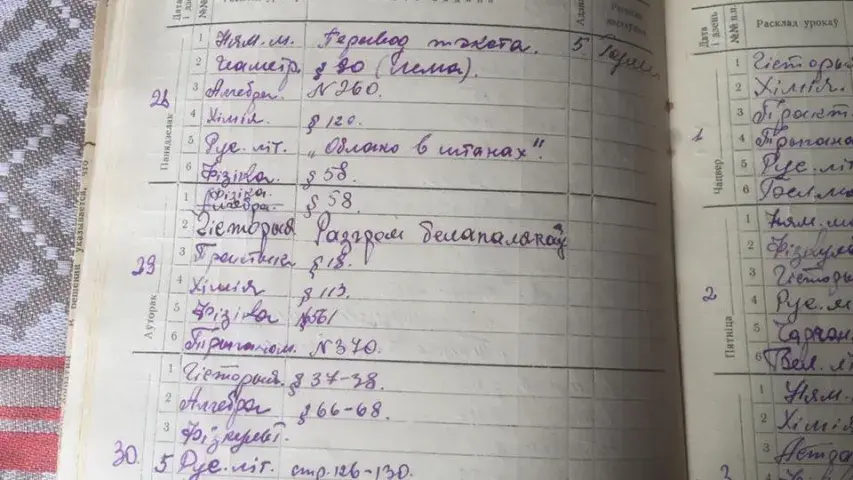 Дата і дзень
№№
Панядзелак 28
1 Ням. м. Перевод тэкста. 5
2 Геаметр. § 20 (чема).
3 Алгебра. N 260.
4 Хімія. § 120.
5 Рус. літ. „Облако в штанах".
6 Фізіка § 58.
Аўторак 29
1 фізіка алгебра. § 58.
2 Гісторыя Разгром белапалякаў
3 § 18.
4 Хімія § 113.
5 Фізіка
6 Трыганом. N 370.
30.
1 Гісторыя. § 37-38.
2 Алгебра § 66-68.
3 Фізкульт.
5 Рус. літ. стр. 126-130.
Дата і дзень
№№ п.п.
Расклад урокаў
Чацвер 1
1 Гісторыя
2 Хімія.
3 Практ.
4
5 Рус. літ
6
Пятніца 2
1 Ням. м.
2 Фізкуль
3 Гісторы
4 Рус. м
5 Чарчэн.
6 Бел. лі
3
1 Ням.
2 Хімія
3 Гісто